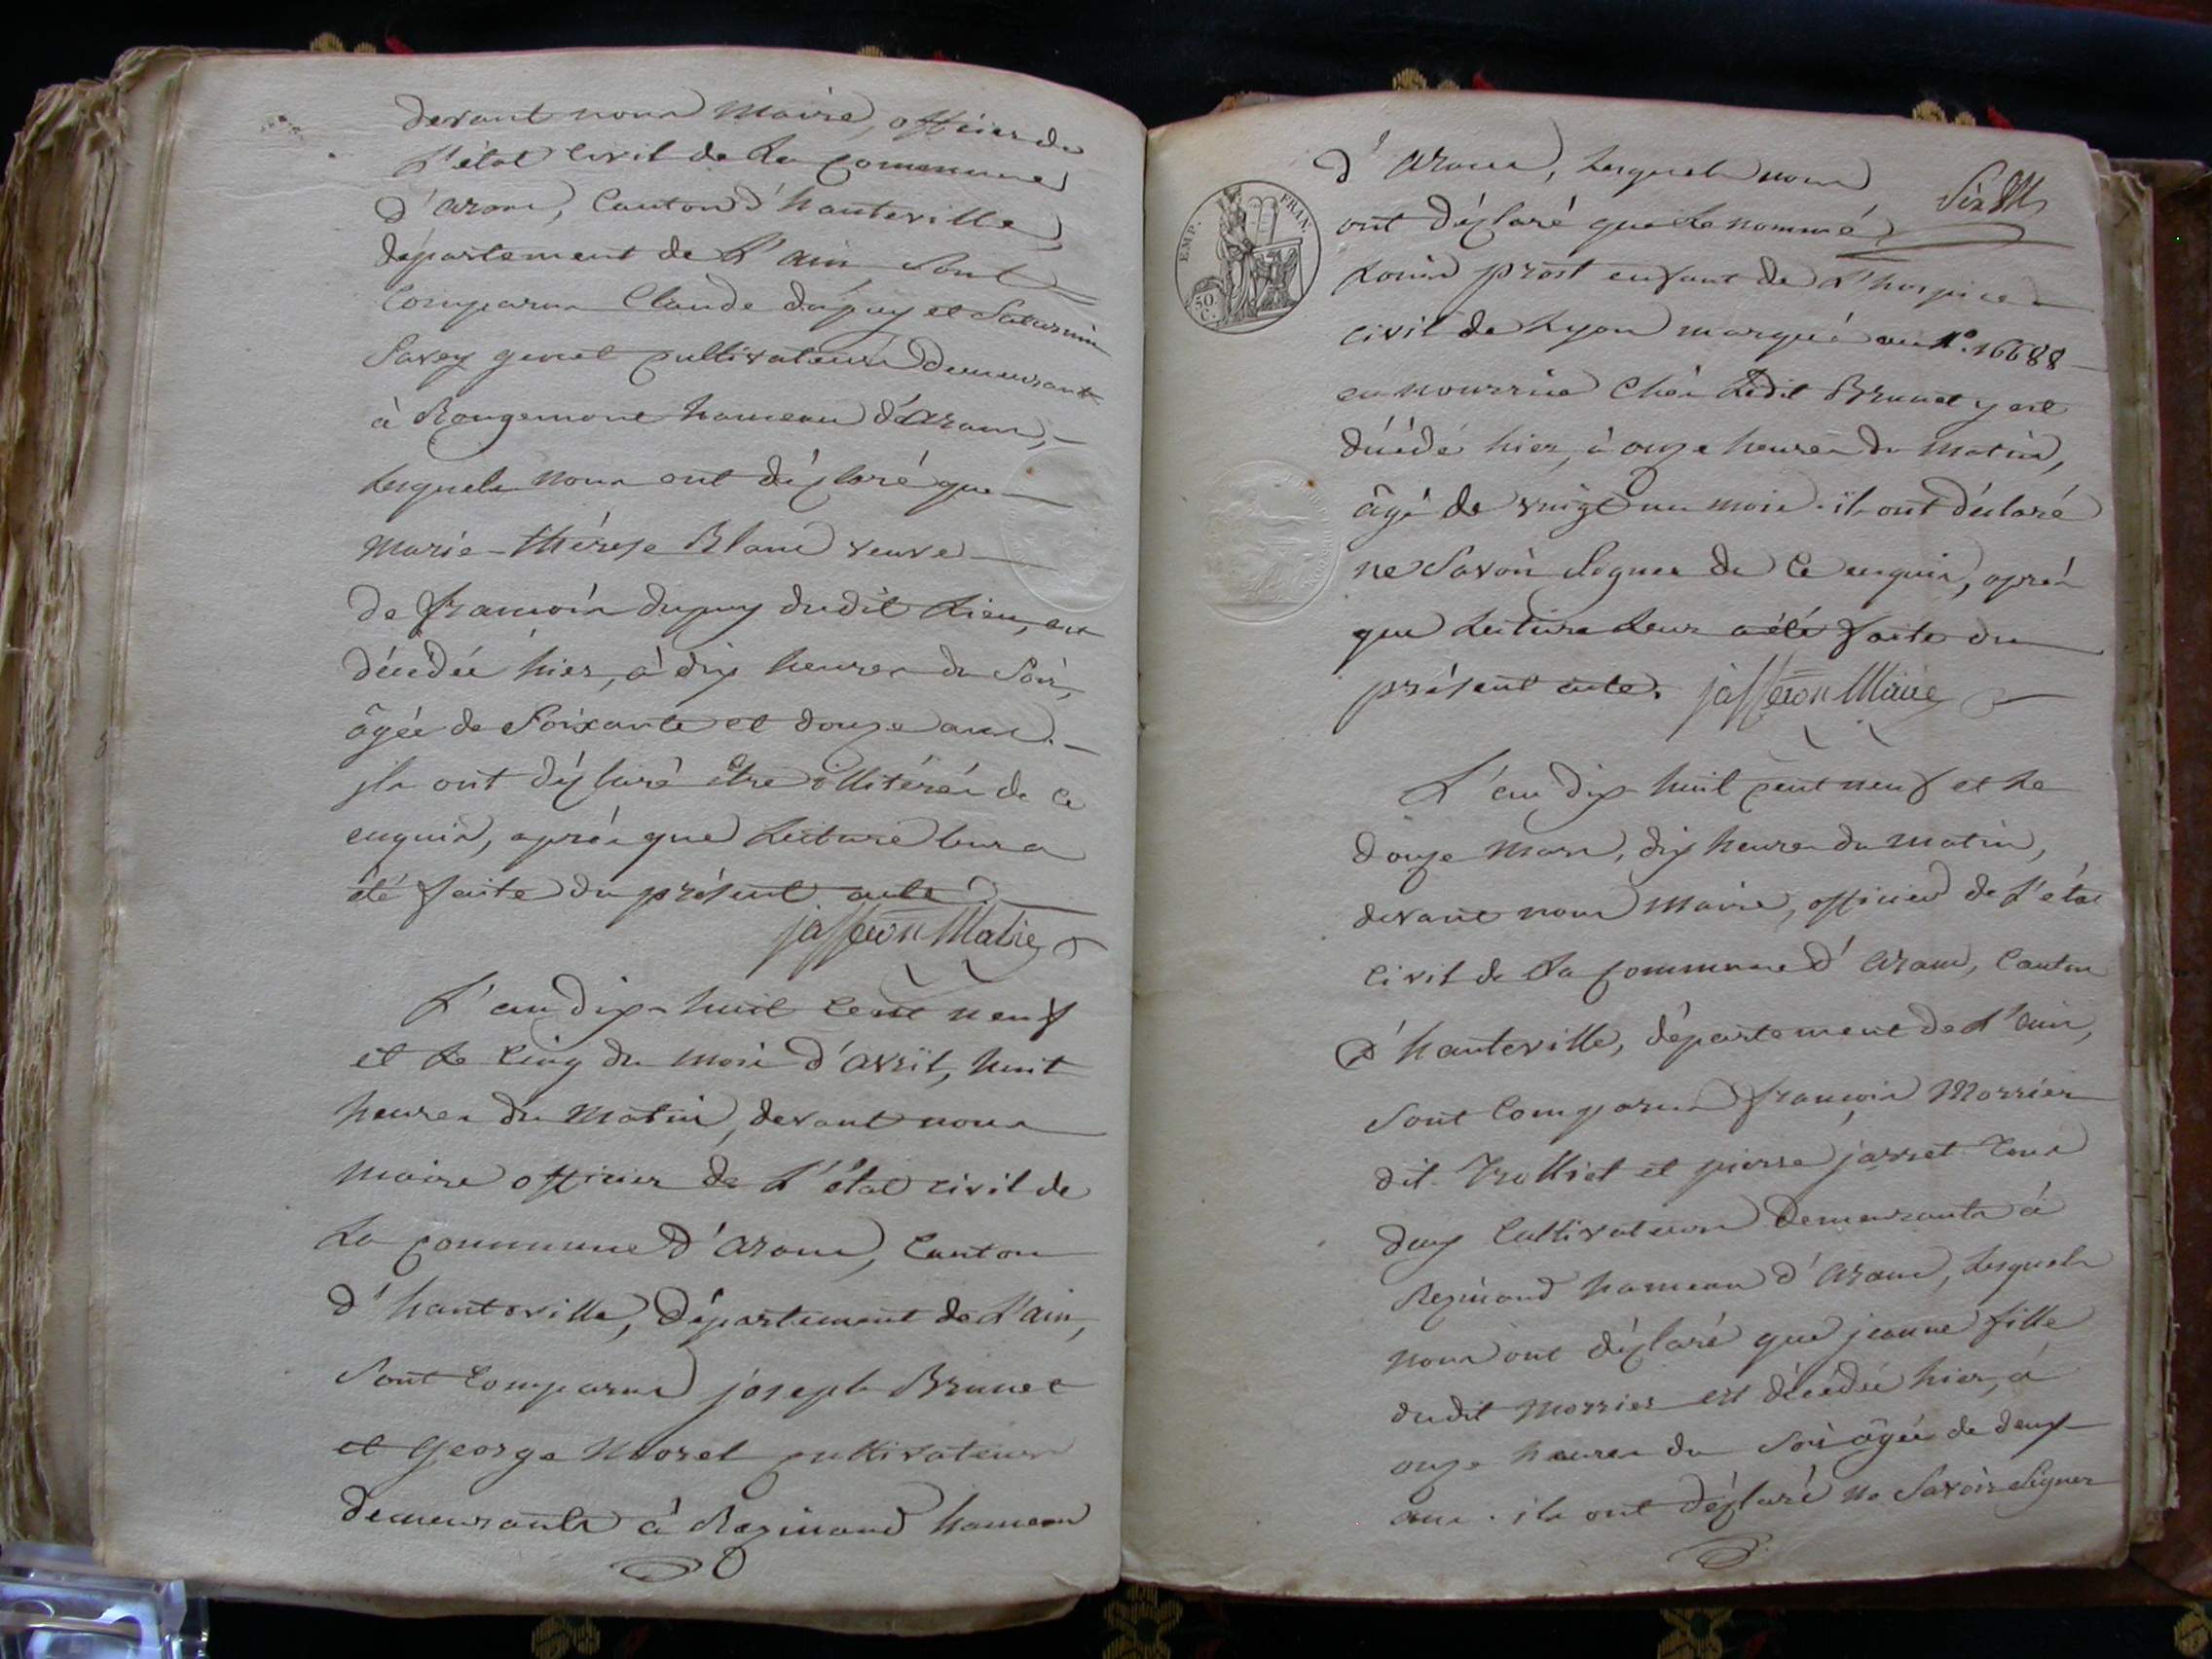 devant nous Maire, officier de
L'état Civil de La Commune
d'aranc, Canton d'hauteville,
département de L'ain Sont
Comparus Claude dupuy et Saturnin
Savey genet Cultivateurs demeurants
à Rougemont hameau d'Aranc,
Lesquels nous ont déclaré que
Marie-thérese Blanc veuve
de françois dupuy dudit Lieu, est
décédée hier, à dix heures du Soir,
âgée de Soixante et douze ans.
ils ont déclaré être illitérés de ce
enquis, après que Lecture leur a
été faite du présent acte.
jasseron Maire
L'an dix-huit Cent neuf
et Le Cinq du mois d'avril, huit
heures du Matin, devant nous
maire officier de L'état civil de
La Commune d'aranc, Canton
d'hauteville, Département de L'ain,
Sont Comparus joseph Brunet
et George Morel Cultivateurs
demeurants à Resinand hameau
EMP. FRAN.
50 C.
d'aranc, Lesquels nous
Six
ont déclaré que Le nommé
Louis prost enfant de L'hospice
civil de Lyon marqué au N.° 16688
en nourrice chés Ledit Brunet y est
décédé hier, à onze heures du Matin,
âgé de vingt un mois. ils ont déclaré
ne Savoir Signer de Ce enquis, après
que Lecture Leur a été faite du
présent acte. jasseron Maire
L'an dix-huit Cent neuf et Le
douze Mars, dix heures du Matin,
devant nous Maire, officier de L'état
Civil de La Commune d'aranc, Canton
d'hauteville, département de L'ain,
Sont Comparus françois Morrier
dit Trolliet et pierre jarret tous
deux Cultivateurs Demeurants à
Resinand hameau d'aranc, Lesquels
nous ont déclaré que jeanne fille
dudit Morrier est décédée hier, à
onze heures du Soir âgée de deux
ans. ils ont déclaré ne Savoir Signer